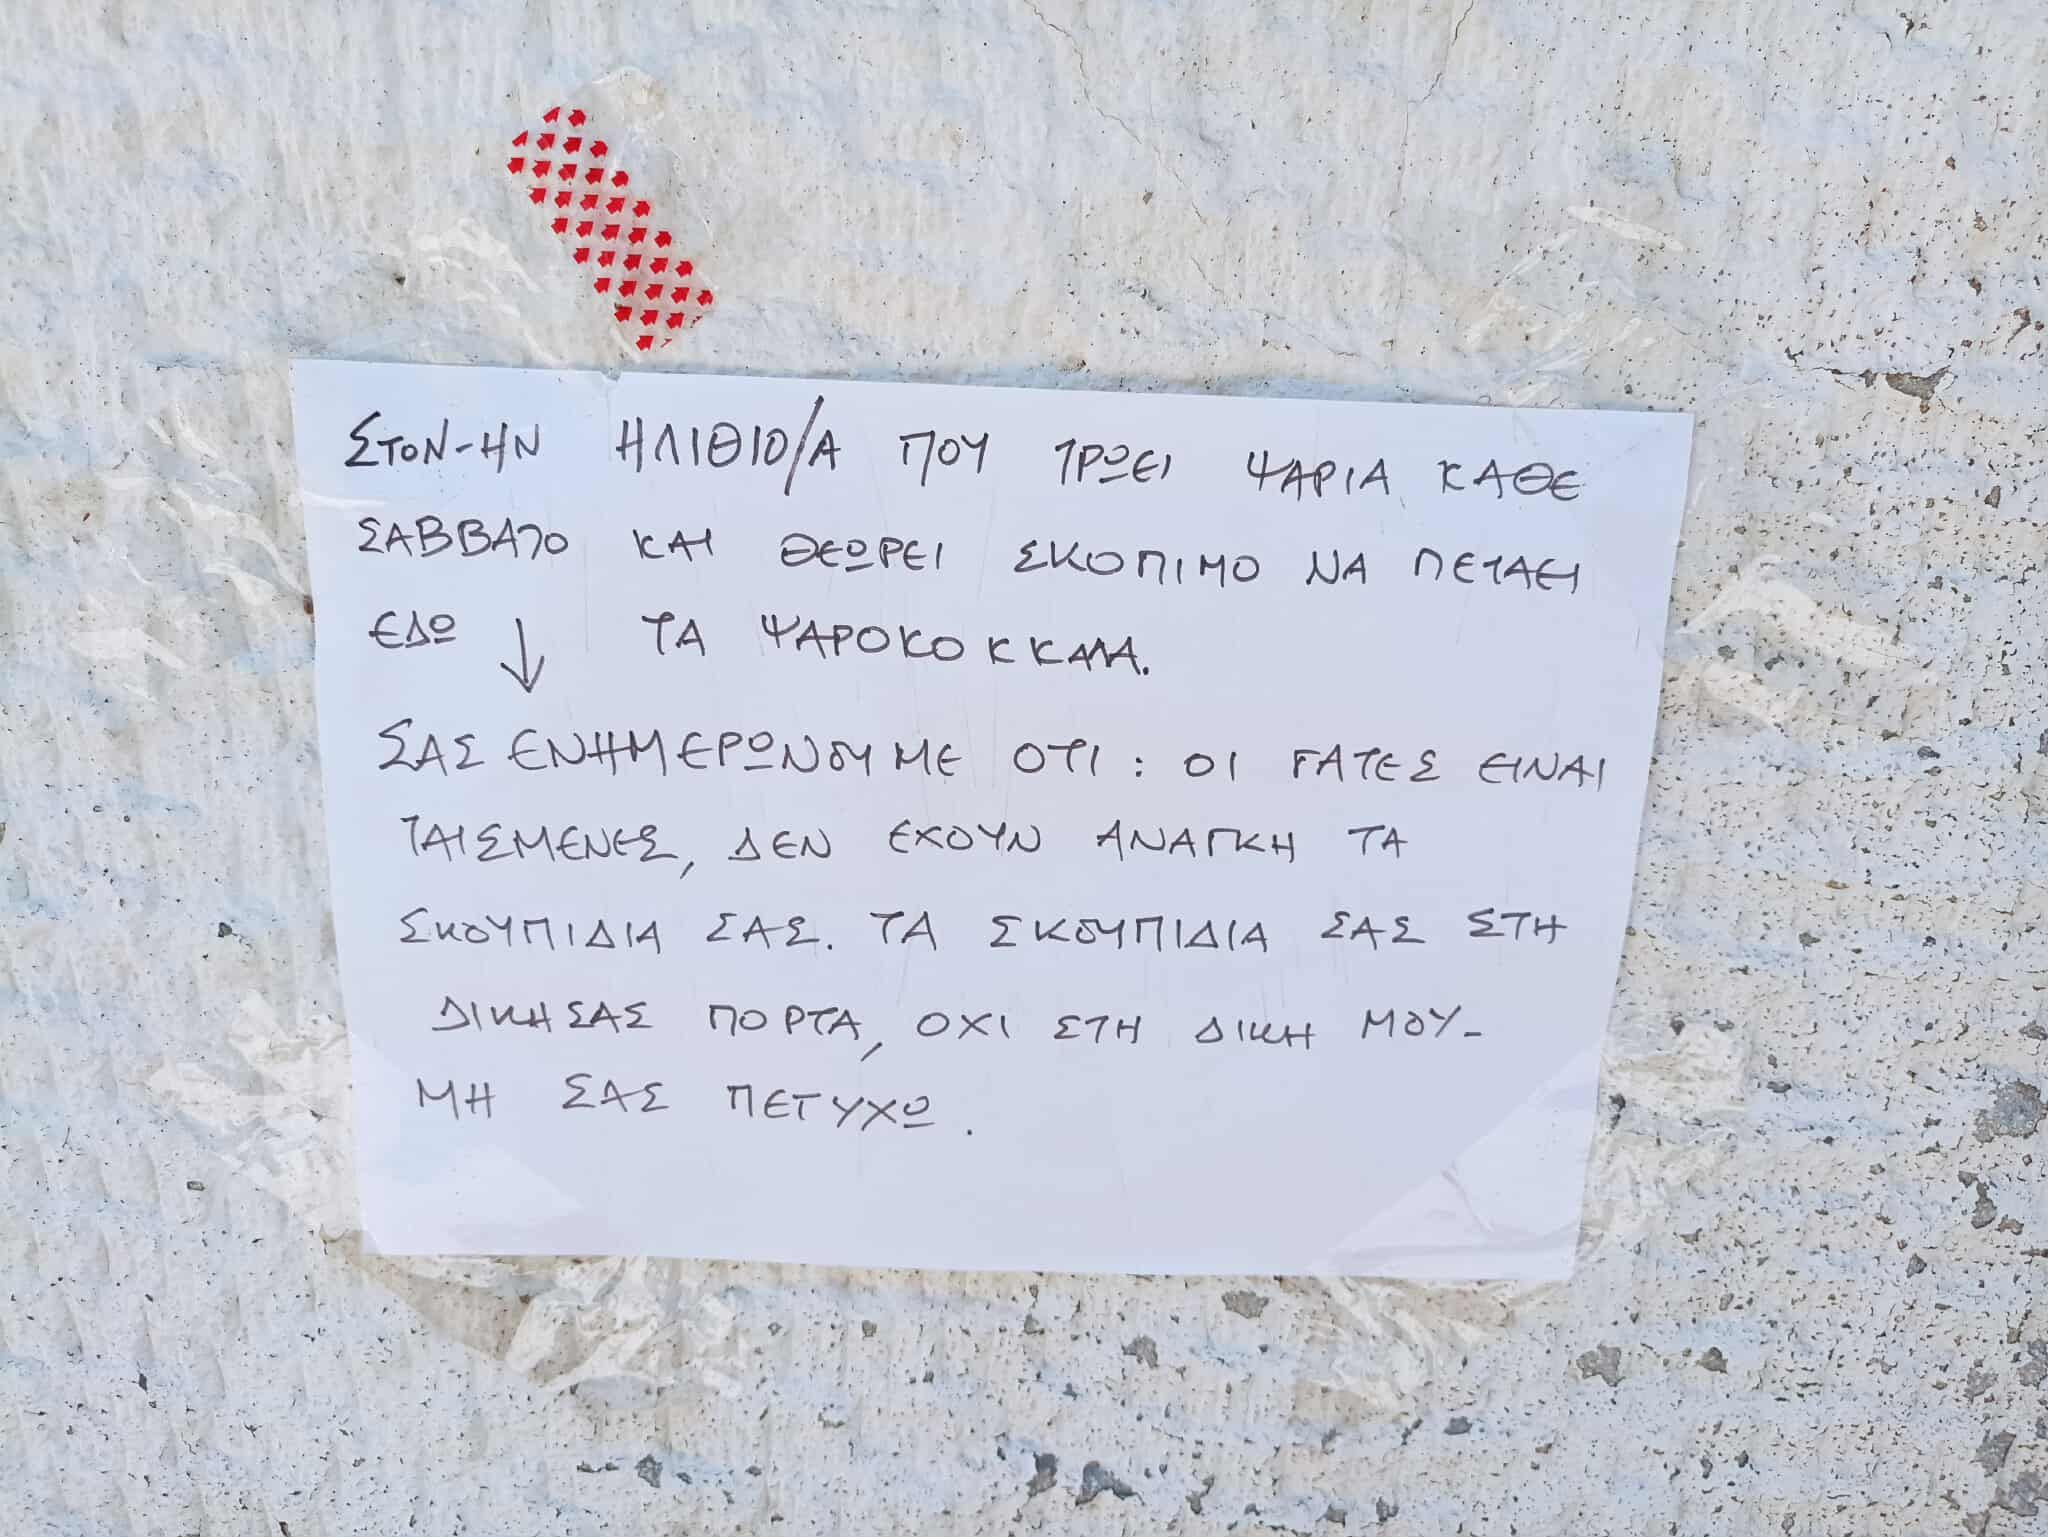 ΣΤΟΝ-ΗΝ ΗΛΙΘΙΟ/Α ΠΟΥ ΤΡΩΕΙ ΨΑΡΙΑ ΚΑΘΕ
ΣΑΒΒΑΤΟ ΚΑΙ ΘΕΩΡΕΙ ΣΚΟΠΙΜΟ ΝΑ ΠΕΤΑΕΙ
ΕΔΩ ↓ ΤΑ ΨΑΡΟΚΟΚΚΑΛΑ.
ΣΑΣ ΕΝΗΜΕΡΩΝΟΥΜΕ ΟΤΙ : ΟΙ ΓΑΤΕΣ ΕΙΝΑΙ
ΤΑΙΣΜΕΝΕΣ, ΔΕΝ ΕΧΟΥΝ ΑΝΑΓΚΗ ΤΑ
ΣΚΟΥΠΙΔΙΑ ΣΑΣ. ΤΑ ΣΚΟΥΠΙΔΙΑ ΣΑΣ ΣΤΗ
ΔΙΚΗ ΣΑΣ ΠΟΡΤΑ, ΟΧΙ ΣΤΗ ΔΙΚΗ ΜΟΥ-
ΜΗ ΣΑΣ ΠΕΤΥΧΩ.